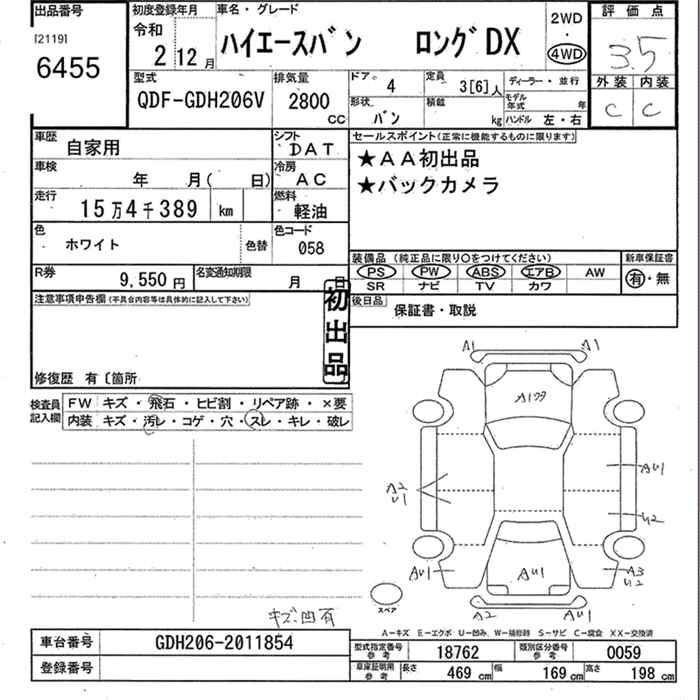 出品番号
[2119]
6455
初度登録年月
令和
2 12 月
車名・グレード
ハイエースバン ロングDX
2WD
・
4WD
評価点
3.5
外装 内装
C C
型式
QDF-GDH206V
排気量
2800
CC
ドア。 4
形状 バン
定員 3[6]人
積載 kg
ディーラー・並行
モデル年式 年
ハンドル 左・右
車歴 自家用
シフト DAT
車検 年 月( 日)
冷房 AC
走行 15万4千389 km
燃料 軽油
色 ホワイト 色替
色コード 058
R券 9,550 円
名変通知期限 月 日
セールスポイント(正常に機能するものに限ります)
★AA初出品
★バックカメラ
装備品 (純正品に限り○をつけてください)
PS PW ABS エアB AW
SR ナビ TV カワ
新車保証書
有・無
後日品 保証書・取説
注意事項申告欄(不具合内容等は具体的に記入して下さい)
初出品
修復歴 有〔箇所
検査員記入欄
FW キズ・飛石・ヒビ割・リペア跡・×要
内装 キズ・汚レ・コゲ・穴・スレ・キレ・破レ
A1 A1
A1
A2
U1
AU1
U2
AU1 AU1 A3
U2
スペア
A2 AU1
キズ凹有
A-キズ E-エクボ U-凹み W-補修跡 S-サビ C-腐食 XX-交換済
車台番号 GDH206-2011854
登録番号
型式指定番号 参考 18762
類別区分番号 参考 0059
車庫証明用 参考 長さ 469 cm 幅 169 cm 高さ 198 cm